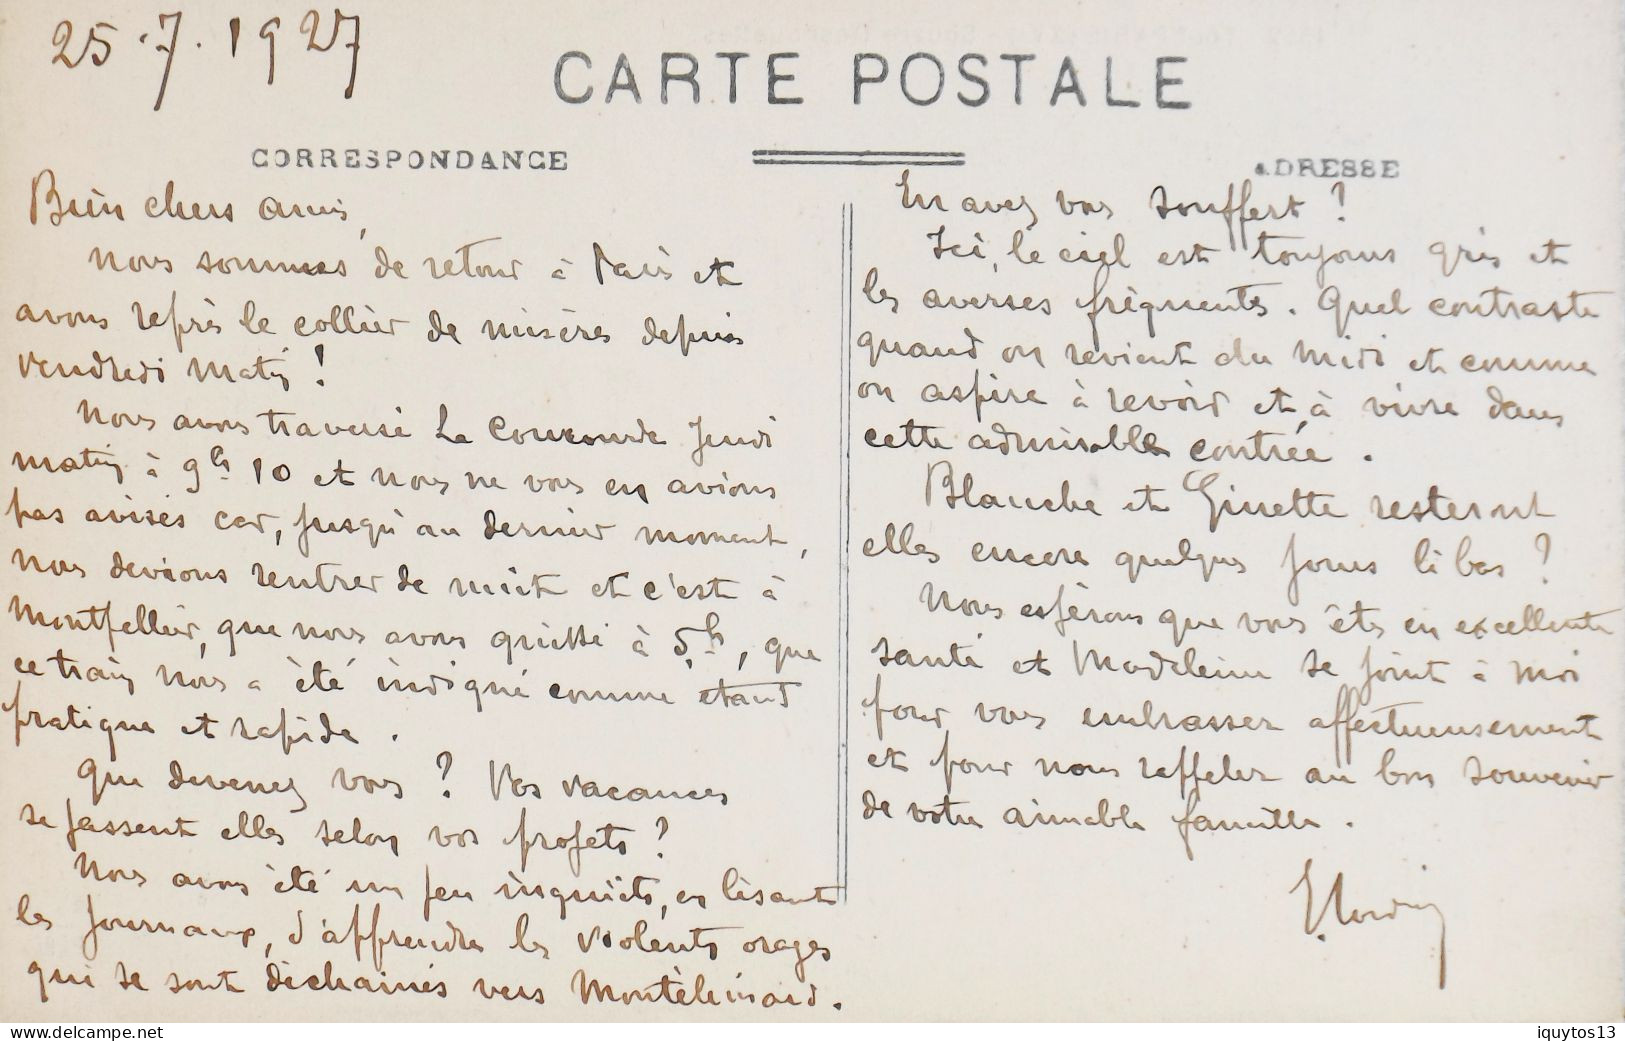 25.7.1927
CARTE POSTALE
CORRESPONDANCE
ADRESSE
Bien chers amis,
Nous sommes de retour à Paris et
avons repris le collier de misères depuis
vendredi matin !
Nous avons traversé La Concourde Jeudi
matin à 9h 10 et nous ne vous en avions
pas avisés car, jusqu'au dernier moment,
nous devions rentrer de nuit et c'est à
Montpellier, que nous avons quitté à 5h, que
ce train nous a été indiqué comme étant
pratique et rapide.
Que devenez vous ? Vos vacances
se passent elles selon vos projets ?
Nous avons été un peu inquiets, en lisant
les journaux, d'apprendre les violents orages
qui se sont déchainés vers Montélimard.
En avez vous souffert ?
Ici, le ciel est toujours gris et
les averses fréquentes. Quel contraste
quand on revient du Midi et comme
on aspire à revoir et à vivre dans
cette admirable contrée.
Blanche et Ginette resteront
elles encore quelques jours là bas ?
Nous espérons que vous êtes en excellente
santé et Madeleine se joint à moi
pour vous embrasser affectueusement
et pour nous rappeler au bon souvenir
de votre aimable famille.
delcampe.net
iquytos13